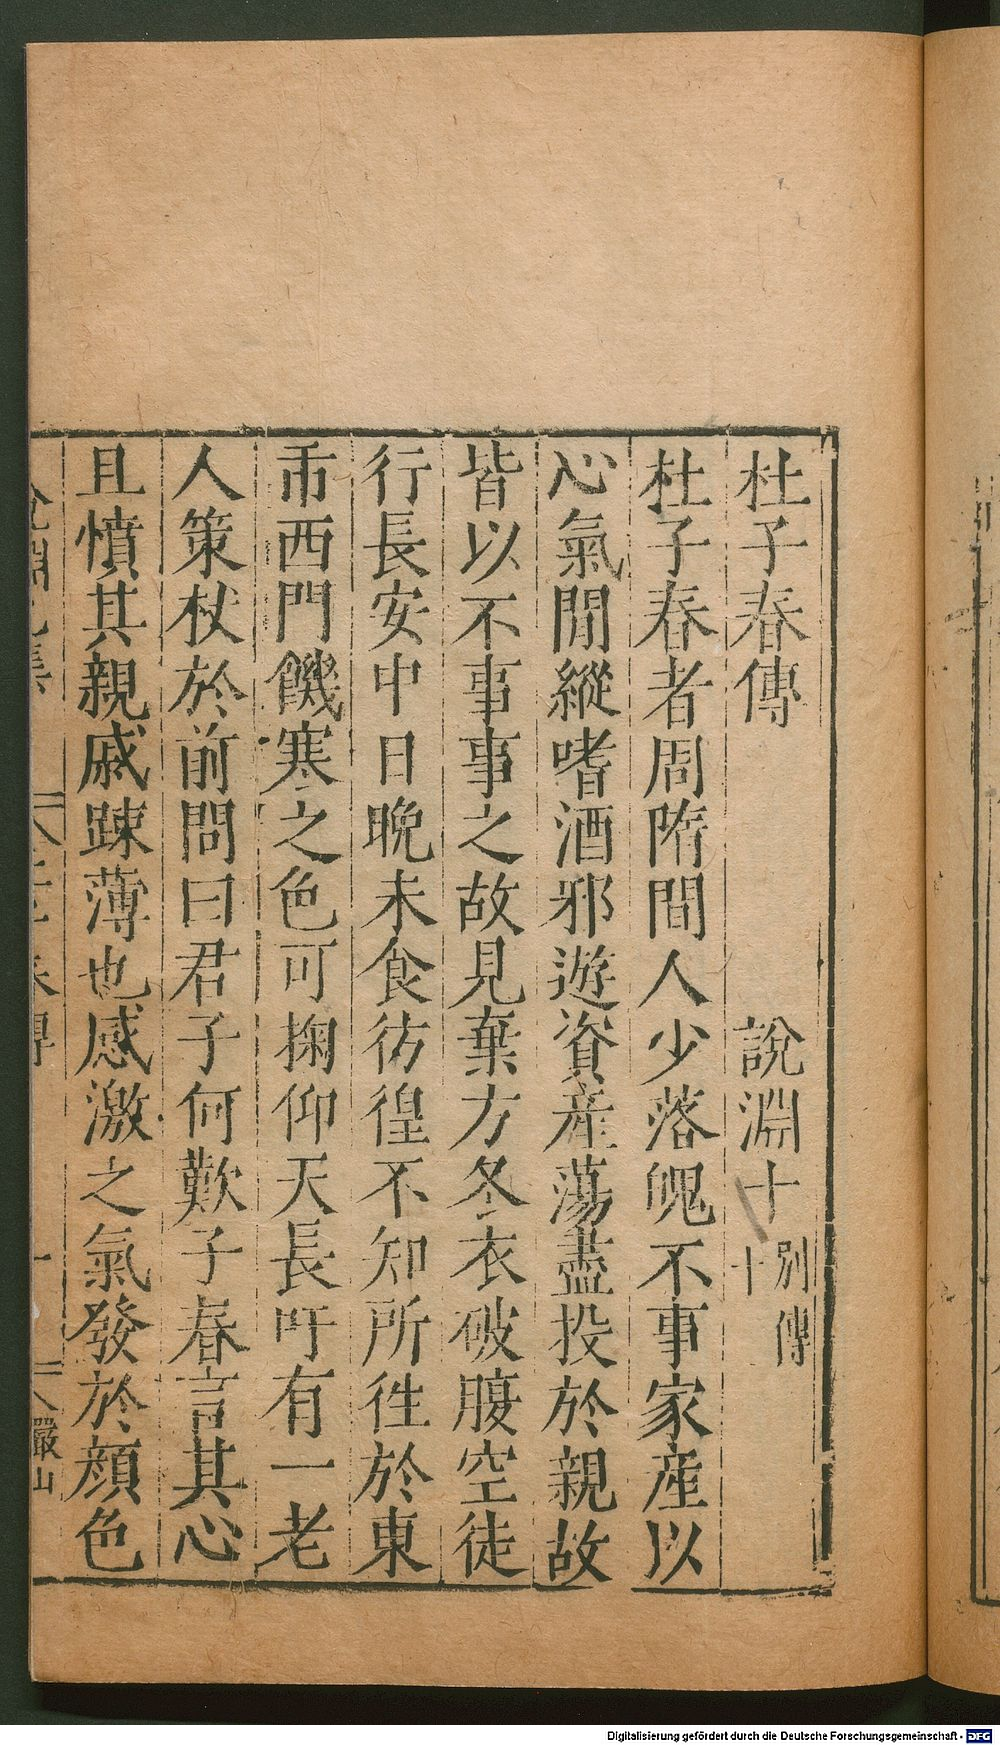 杜子春傳　說淵十　別傳十
杜子春者周隋間人少落魄不事家產以
心氣閒縱嗜酒邪遊資產蕩盡投於親故
皆以不事事之故見棄方冬衣破腹空徒
行長安中日晚未食彷徨不知所徃於東
帀西門饑寒之色可掬仰天長吁有一老
人策杖於前問曰君子何歎子春言其心
且憤其親戚踈薄也感激之氣發於顏色
嚴山
Digitalisierung gefördert durch die Deutsche Forschungsgemeinschaft - DFG